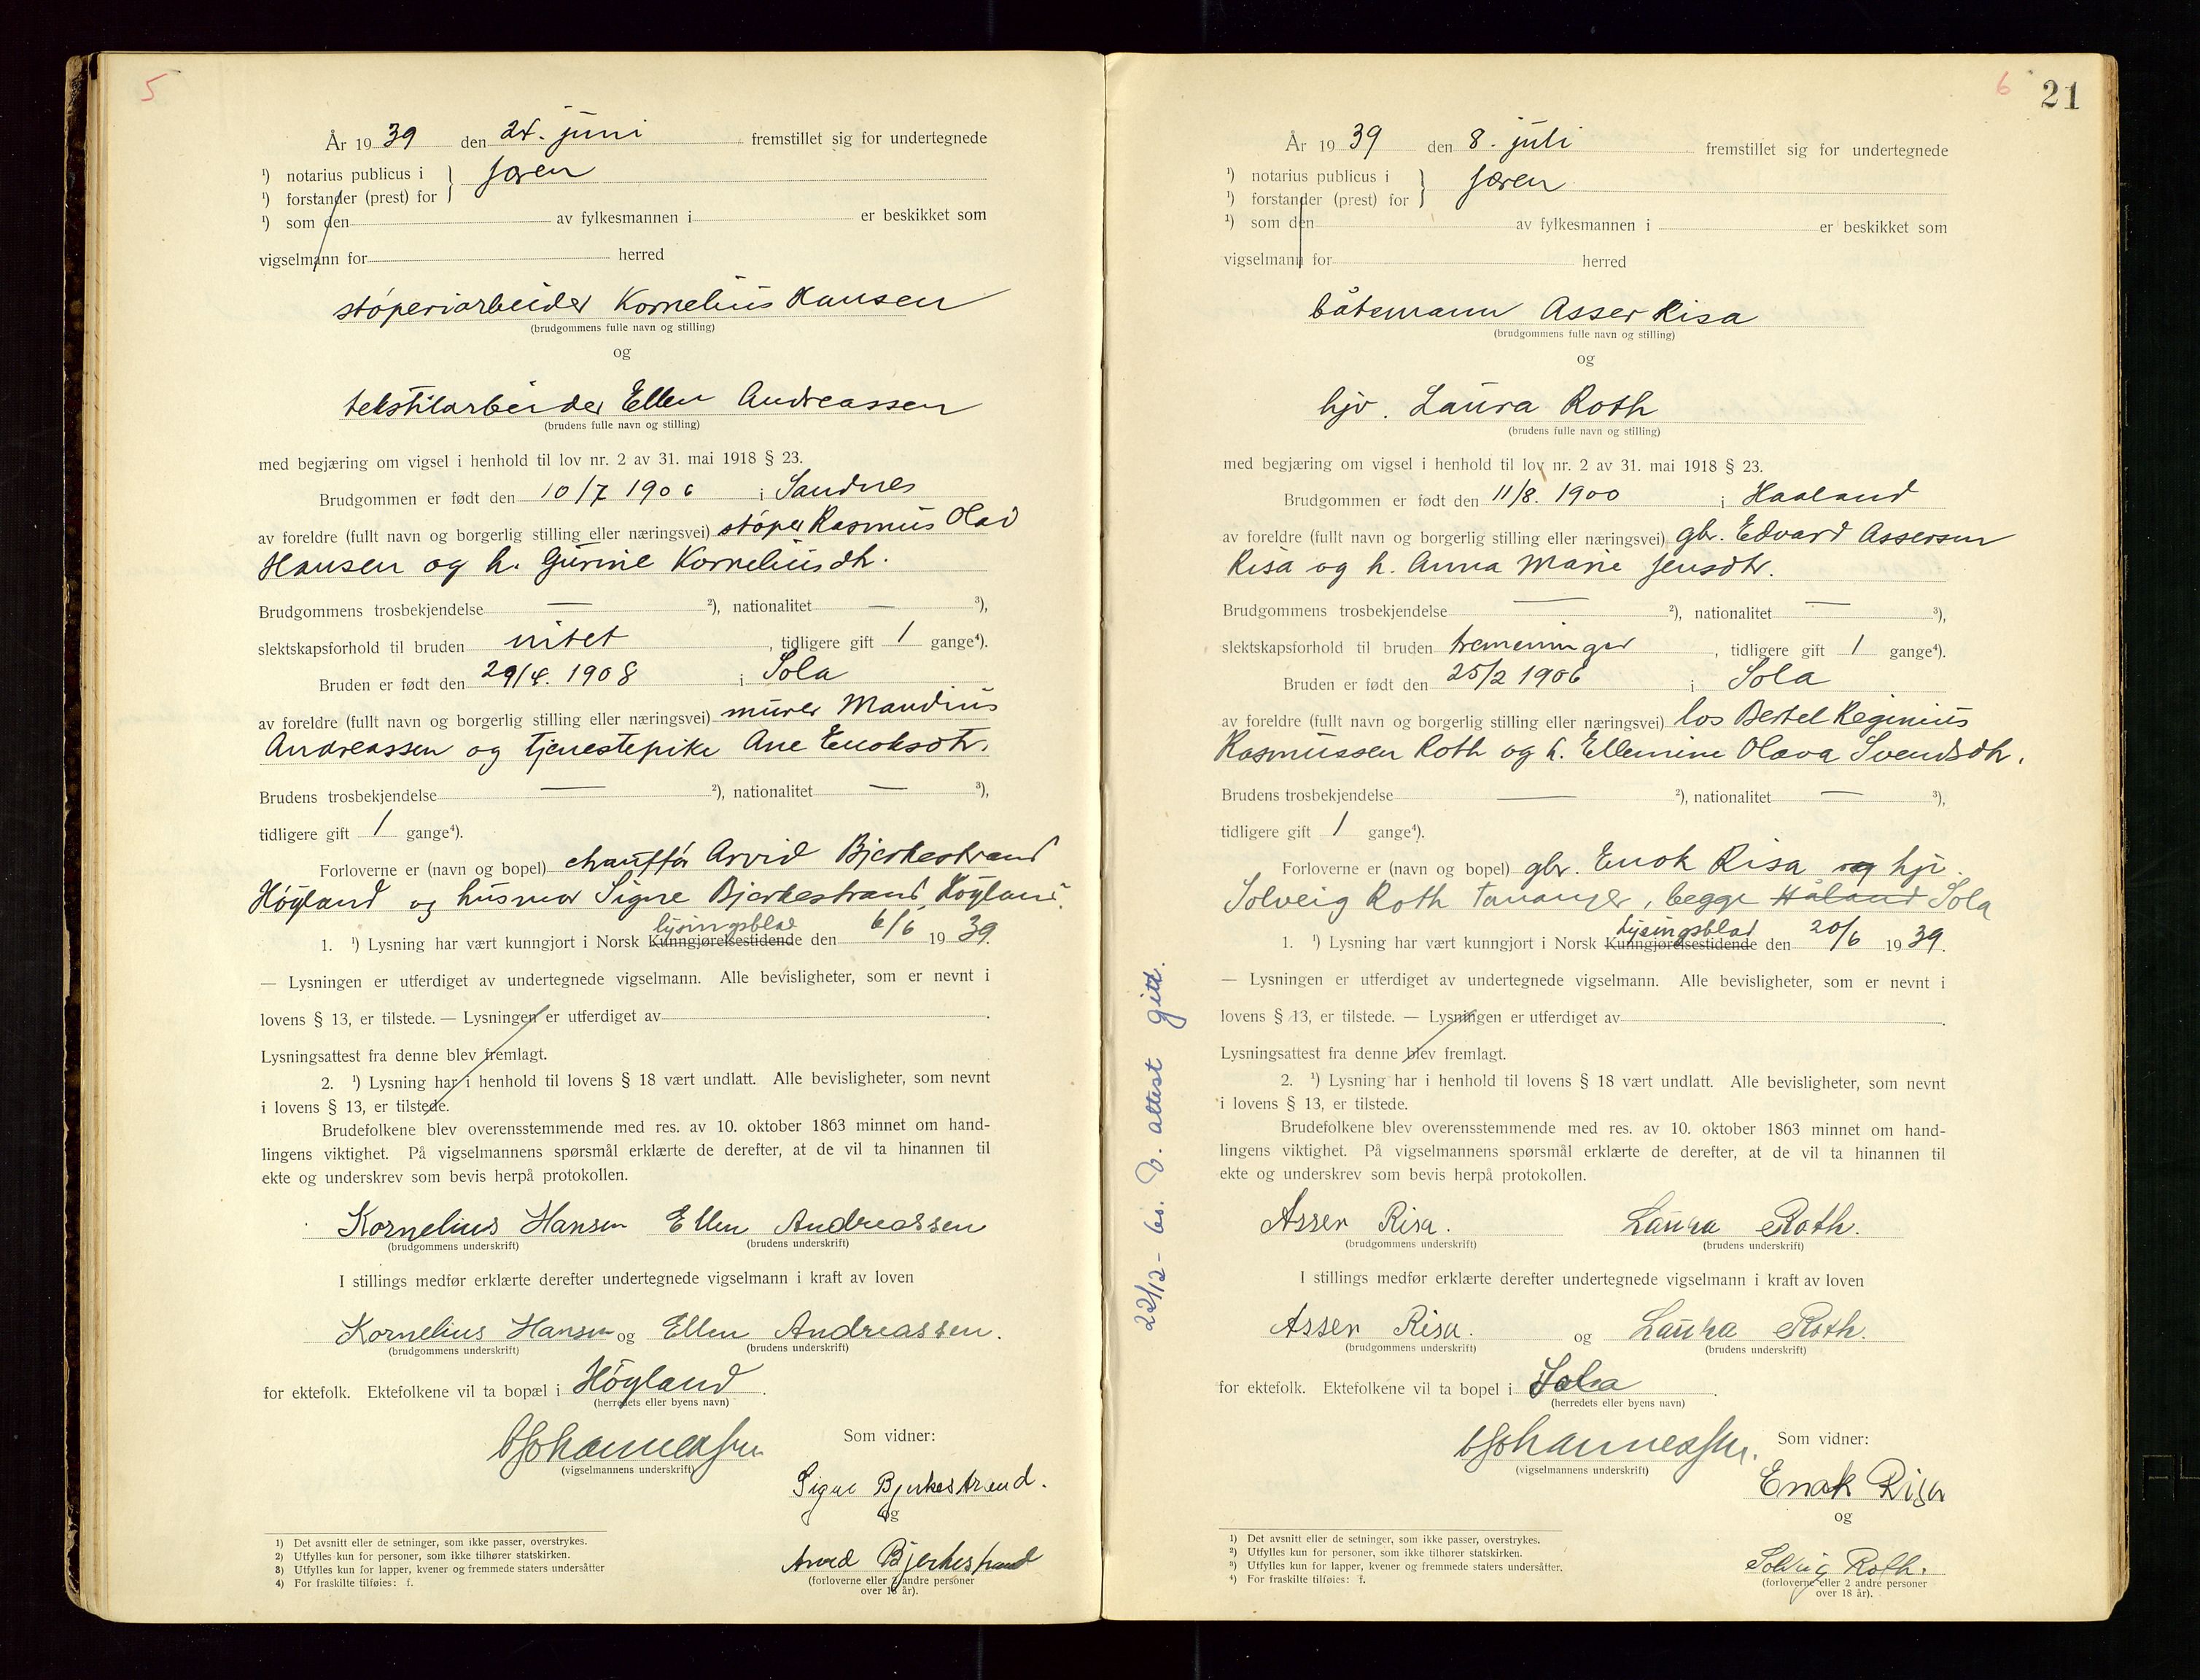 5
År 19 39 den 24. juni fremstillet sig for undertegnede
¹) notarius publicus i } Jæren
¹) forstander (prest) for
¹) som den av fylkesmannen i er beskikket som
vigselmann for herred
støperiarbeider Kornelius Hansen
(brudgommens fulle navn og stilling)
og
tekstilarbeider Ellen Andreassen
(brudens fulle navn og stilling)
med begjæring om vigsel i henhold til lov nr. 2 av 31. mai 1918 § 23.
Brudgommen er født den 10/7 1906 i Sandnes
av foreldre (fullt navn og borgerlig stilling eller næringsvei) støper Rasmus Olai
Hansen og h. Gurine Korneliusdtr.
Brudgommens trosbekjendelse — ²), nationalitet — ³),
slektskapsforhold til bruden intet, tidligere gift 1 gange⁴).
Bruden er født den 29/4. 1908 i Sola
av foreldre (fullt navn og borgerlig stilling eller næringsvei) murer Mandius
Andreassen og tjenestepike Ane Enoksdtr.
Brudens trosbekjendelse — ²), nationalitet — ³),
tidligere gift 1 gange⁴).
Forloverne er (navn og bopel) chauffør Arvid Bjerkestrand
Høyland og husmor Signe Bjerkestrand, Høyland.
lysingsblad
1. ¹) Lysning har vært kunngjort i Norsk Kunngjørelsestidende den 6/6 19 39.
— Lysningen er utferdiget av undertegnede vigselmann. Alle bevisligheter, som er nevnt i
lovens § 13, er tilstede. — Lysningen er utferdiget av .
Lysningsattest fra denne blev fremlagt.
2. ¹) Lysning har i henhold til lovens § 18 vært undlatt. Alle bevisligheter, som nevnt
i lovens § 13, er tilstede.
Brudefolkene blev overensstemmende med res. av 10. oktober 1863 minnet om hand-
lingens viktighet. På vigselmannens spørsmål erklærte de derefter, at de vil ta hinannen til
ekte og underskrev som bevis herpå protokollen.
Kornelius Hansen Ellen Andreassen
(brudgommens underskrift) (brudens underskrift)
I stillings medfør erklærte derefter undertegnede vigselmann i kraft av loven
Kornelius Hansen og Ellen Andreassen.
(brudgommens underskrift) (brudens underskrift)
for ektefolk. Ektefolkene vil ta bopæl i Høyland.
(herredets eller byens navn)
Johannessen
(vigselmannens underskrift)
Som vidner:
Signe Bjerkestrand.
og
Arvid Bjerkestrand
(forloverne eller 2 andre personer
over 18 år).
1) Det avsnitt eller de setninger, som ikke passer, overstrykes.
2) Utfylles kun for personer, som ikke tilhører statskirken.
3) Utfylles kun for lapper, kvener og fremmede staters undersåtter
4) For fraskilte tilføies: f.
6 21
År 19 39 den 8. juli fremstillet sig for undertegnede
¹) notarius publicus i } Jæren
¹) forstander (prest) for
¹) som den av fylkesmannen i er beskikket som
vigselmann for herred
båtsmann Asser Risa
(brudgommens fulle navn og stilling)
og
hjv. Laura Roth
(brudens fulle navn og stilling)
med begjæring om vigsel i henhold til lov nr. 2 av 31. mai 1918 § 23.
Brudgommen er født den 11/8. 1900 i Haaland
av foreldre (fullt navn og borgerlig stilling eller næringsvei) gbr. Edvard Assersen
Risa og h. Anna Marie Jensdtr.
Brudgommens trosbekjendelse — ²), nationalitet — ³),
slektskapsforhold til bruden tremeninger, tidligere gift 1 gange⁴).
Bruden er født den 25/2 1906 i Sola
av foreldre (fullt navn og borgerlig stilling eller næringsvei) los Bertel Reginius
Rasmussen Roth og h. Ellemine Olava Svendsdtr.
Brudens trosbekjendelse — ²), nationalitet — ³),
tidligere gift 1 gange⁴).
Forloverne er (navn og bopel) gbr. Enok Risa og hjv.
Solveig Roth Tananger, begge Håland Sola
lysingsblad
1. ¹) Lysning har vært kunngjort i Norsk Kunngjørelsestidende den 20/6 19 39.
— Lysningen er utferdiget av undertegnede vigselmann. Alle bevisligheter, som er nevnt i
lovens § 13, er tilstede. — Lysningen er utferdiget av .
Lysningsattest fra denne blev fremlagt.
2. ¹) Lysning har i henhold til lovens § 18 vært undlatt. Alle bevisligheter, som nevnt
i lovens § 13, er tilstede.
Brudefolkene blev overensstemmende med res. av 10. oktober 1863 minnet om hand-
lingens viktighet. På vigselmannens spørsmål erklærte de derefter, at de vil ta hinannen til
ekte og underskrev som bevis herpå protokollen.
Asser Risa. Laura Roth.
(brudgommens underskrift) (brudens underskrift)
I stillings medfør erklærte derefter undertegnede vigselmann i kraft av loven
Asser Risa. og Laura Roth.
(brudgommens underskrift) (brudens underskrift)
for ektefolk. Ektefolkene vil ta bopel i Sola.
(herredets eller byens navn)
Johannessen.
(vigselmannens underskrift)
Som vidner:
Enok Risa
og
Solveig Roth.
(forloverne eller 2 andre personer
over 18 år).
¹) Det avsnitt eller de setninger, som ikke passer, overstrykes.
²) Utfylles kun for personer, som ikke tilhører statskirken.
³) Utfylles kun for lapper, kvener og fremmede staters undersåtter.
⁴) For fraskilte tilføies: f.
22/12- 60. D. attest gitt.